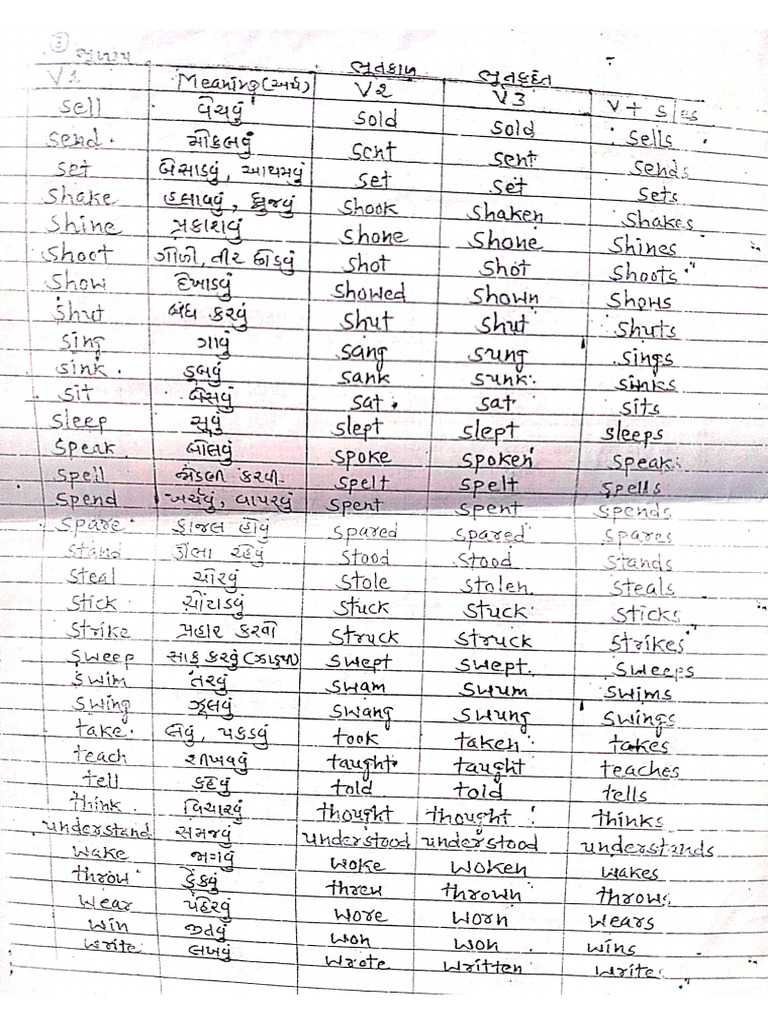 ભૂતકાળ ભૂતકૃદંત
V1 Meaning (અર્થ) V2 V3 V+ s/es
sell વેચવું sold sold sells
send મોકલવું sent sent sends
set બેસાડવું, આથમવું set set sets
shake હલાવવું, ધ્રુજવું shook shaken shakes
shine પ્રકાશવું shone shone shines
shoot ગોળી, તીર છોડવું shot shot shoots
show દેખાડવું showed shown shows
shut બંધ કરવું shut shut shuts
sing ગાવું sang sung sings
sink ડૂબવું sank sunk sinks
sit બેસવું sat sat sits
sleep સૂવું slept slept sleeps
speak બોલવું spoke spoken speak
spell જોડણી કરવી spelt spelt spells
spend ખર્ચવું, વાપરવું spent spent spends
spare ફાજલ હોવું spared spared spares
stand ઊભા રહેવું stood stood stands
steal ચોરવું stole stolen steals
stick ચોંટાડવું stuck stuck sticks
strike પ્રહાર કરવો struck struck strikes
sweep સાફ કરવું swept swept sweeps
swim તરવું swam swum swims
swing ઝૂલવું swang swung swings
take લેવું, પકડવું took taken takes
teach શીખવવું taught taught teaches
tell કહેવું told told tells
think વિચારવું thought thought thinks
understand સમજવું understood understood understands
wake જાગવું woke woken wakes
throw ફેંકવું threw thrown throws
wear પહેરવું wore worn wears
win જીતવું won won wins
write લખવું wrote written write